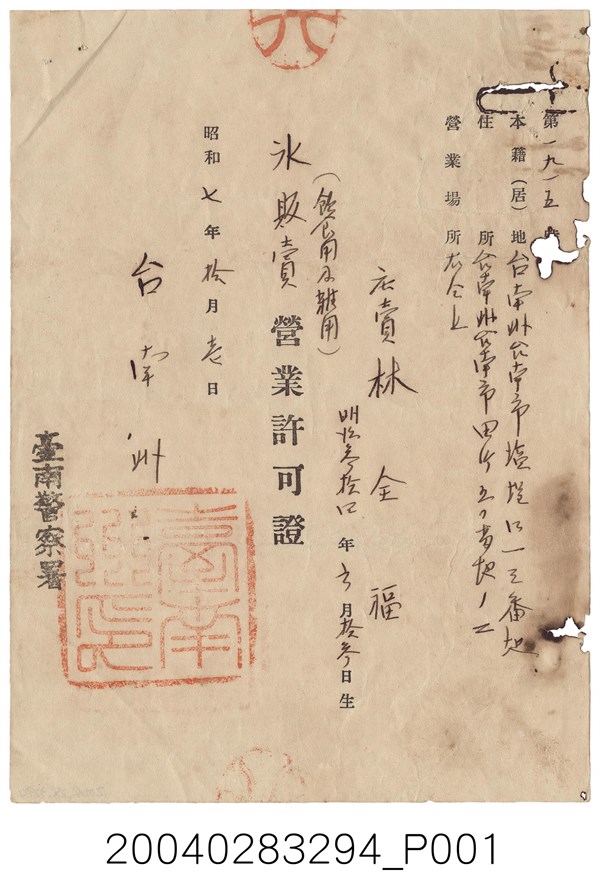 第一九一五
本籍(居)地台南州台南市塩埕一三番地
住所台南州台南市田町五丁目番地ノ二
營業場所右仝上
広賣林全福
明治參拾四年六月拾參日生
(飲食用及雜用)
氷販賣營業許可證
昭和七年拾月壱日
台南州
臺南警察署
臺南州印
20040283294_P001